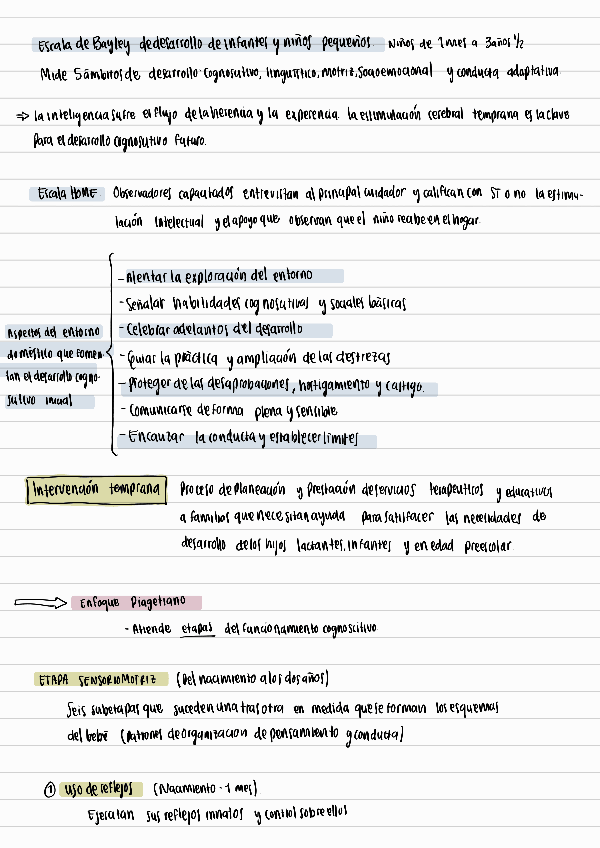 Escala de Bayley de desarrollo de infantes y niños pequeños. Niños de 1 mes a 3 años 1/2
Mide 5 ámbitos de desarrollo: Cognositivo, lingüístico, motriz, socioemocional y conducta adaptativa.
⇒ la inteligencia sufre el flujo de la herencia y la experiencia. la estimulación cerebral temprana es la clave
para el desarrollo cognositivo futuro.
Escala HOME. Observadores capacitados entrevistan al principal cuidador y califican con SI o no la estimu-
lación intelectual y el apoyo que observan que el niño recibe en el hogar.
Aspectos del entorno
doméstico que fomen-
tan el desarrollo cogno-
sitivo inicial
- Alentar la exploración del entorno
- Señalar habilidades cognositivas y sociales básicas
- Celebrar adelantos del desarrollo
- Guiar la práctica y ampliación de las destrezas
- Proteger de las desaprobaciones, hostigamiento y castigo.
- Comunicarse de forma plena y sensible
- Encauzar la conducta y establecer límites
Intervención temprana Proceso de planeación y prestación de servicios terapéuticos y educativos
a familias que necesitan ayuda para satisfacer las necesidades de
desarrollo de los hijos lactantes, infantes y en edad preescolar
Enfoque Piagetiano
- Atiende etapas del funcionamiento cognoscitivo
ETAPA SENSORIOMOTRIZ (Del nacimiento a los dos años)
Seis subetapas que suceden una tras otra en medida que se forman los esquemas
del bebé (patrones de organización de pensamiento y conducta)
① Uso de reflejos (Nacimiento - 1 mes)
Ejercitan sus reflejos innatos y control sobre ellos